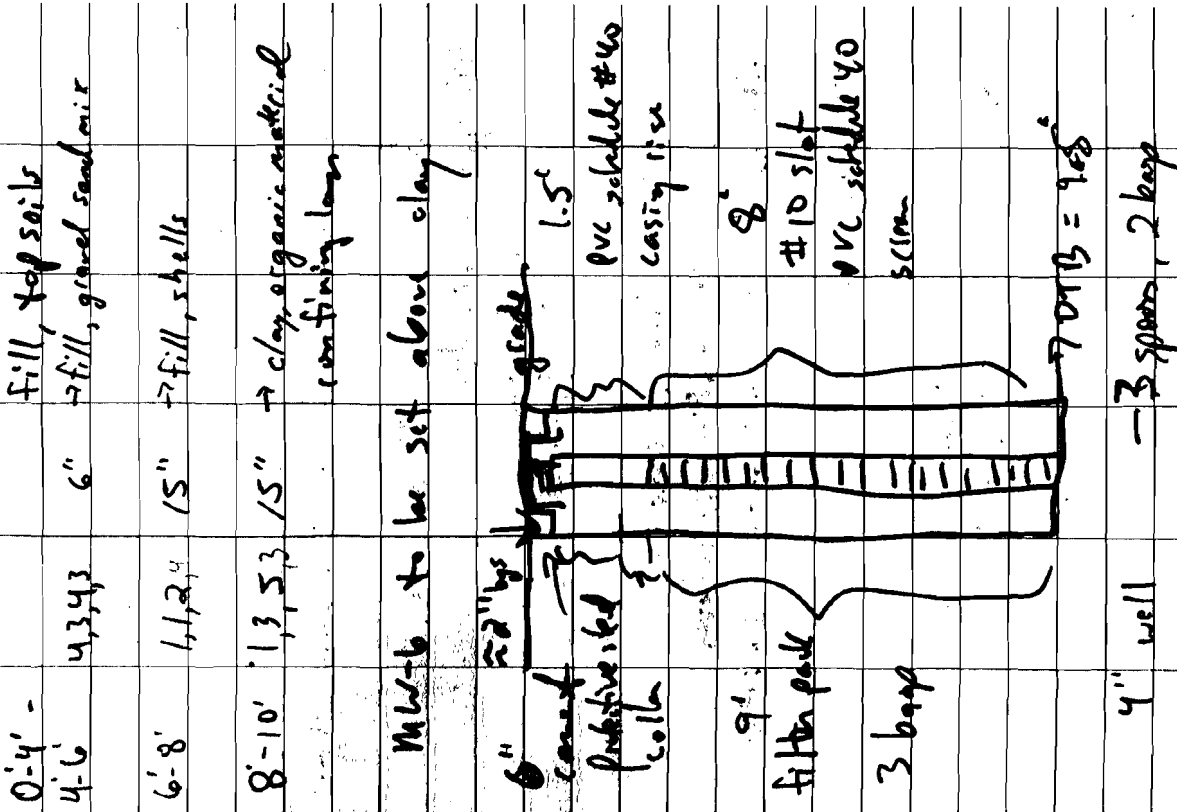 0'-4' - fill, top soils
4'-6' 4,3,4,3 6" → fill, gravel sand mix
6'-8' 1,1,2,4 15" → fill, shells
8'-10' 1,3,5,3 15" → clay, organic material
confining layer
MW-6 to be set above clay
≈2" bgs
grade
6"
cement
Protective sted
collar
1.5'
PVC schedule #40
casing riser
9'
filter pack
3 bags
8'
#10 slot
PVC schedule 40
screen
→ DTB =
4" well - 3 spoons, 2 bags